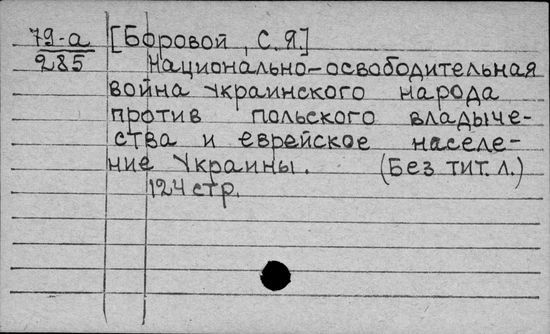 79-а [Боровой, С. Я.]
285 Национально-освободительная
война Украинского народа
против польского владыче-
ства и еврейское населе-
ние Украины. (Без тит. л.)
124 стр.